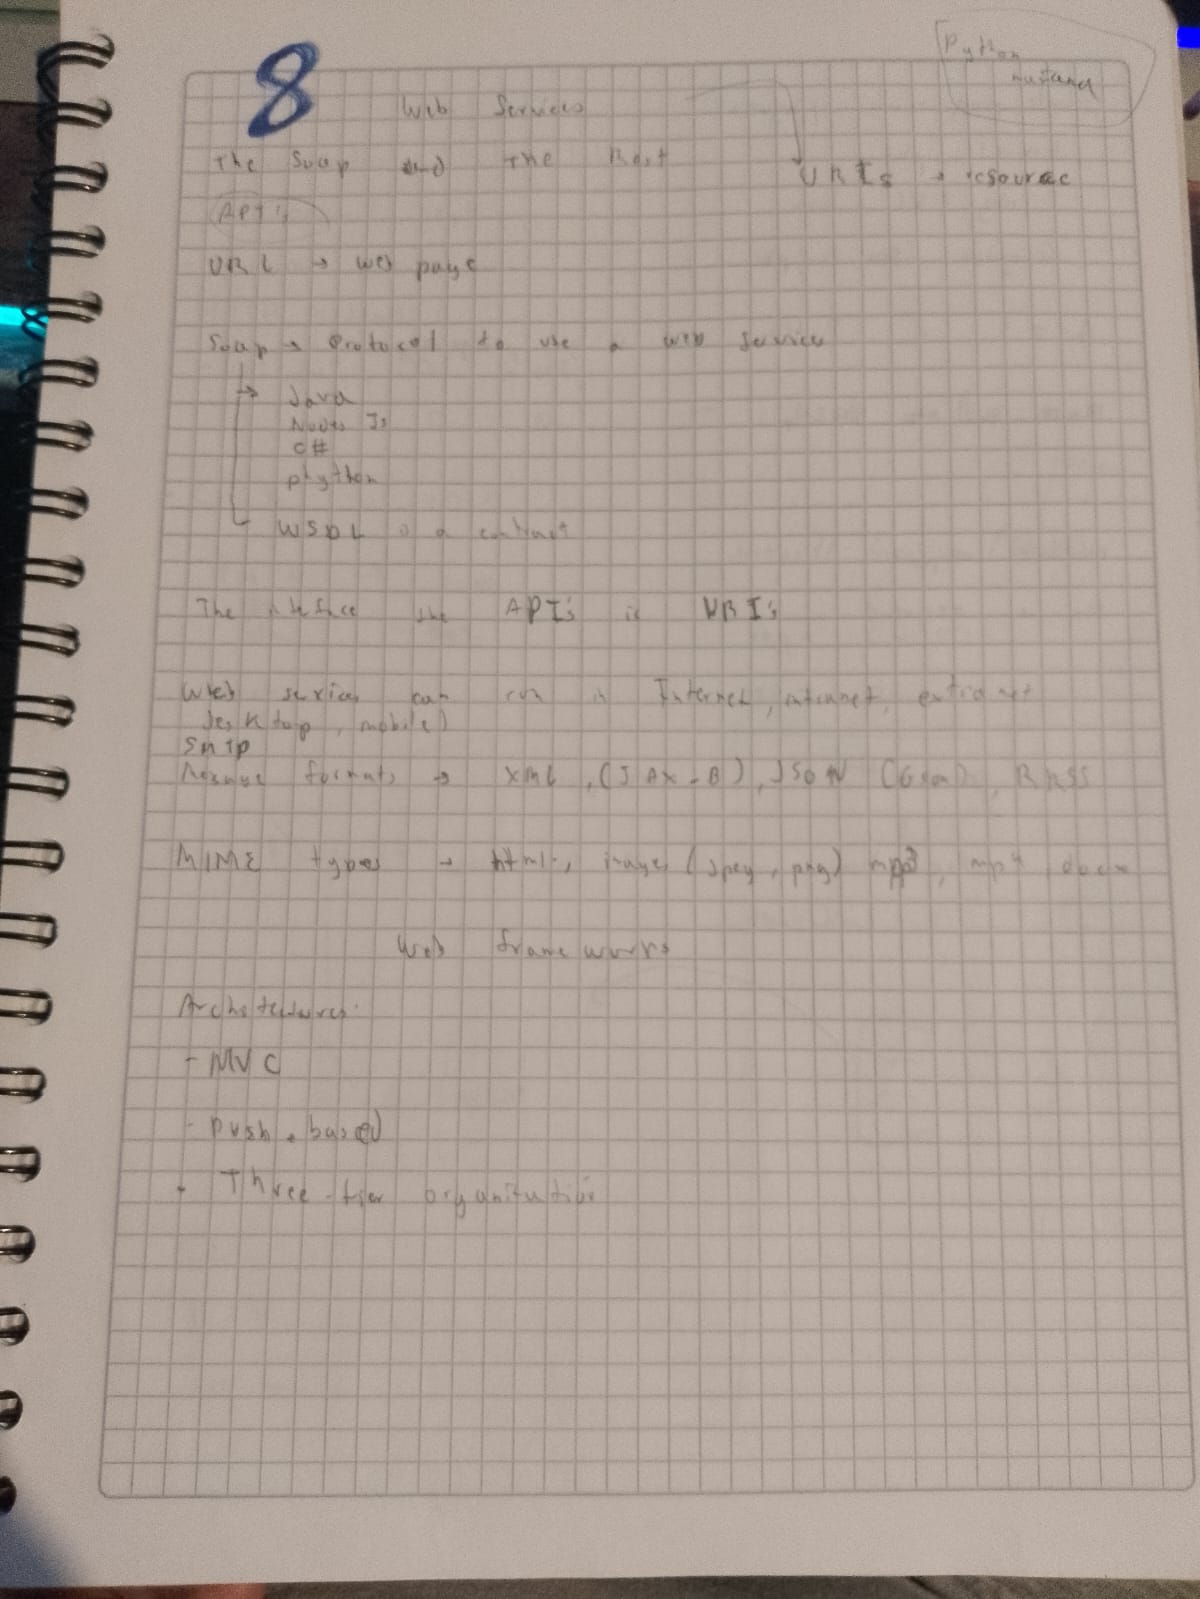 Python
8
Web Services
The Soap and The Rest
URIs → resource
API's
URL → web page
Soap → Protocol to use a web service
→ Java
Node Js
C#
phython
WSDL is a contract
The the API's is URI's
Web services can run in Internet, intranet, extranet
desktop, mobile)
formats → XML, (JAX-B), JSON (Gson), RSS
MIME types → html, images (jpeg, png) mp3, mp4 docx
Web frameworks
Architectures
- MVC
- push-based
- Three-tier organization